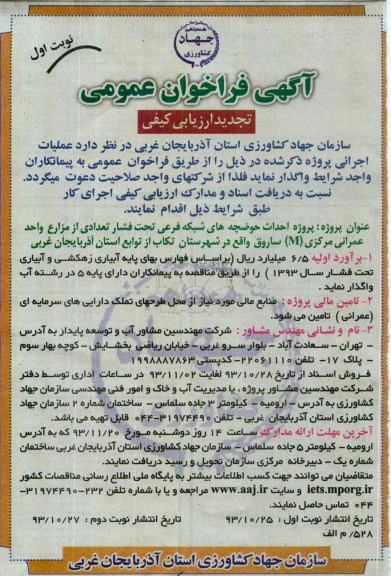 هفته‌نامه
جهاد
کشاورزی
نوبت اول
آگهی فراخوان عمومی
تجدید ارزیابی کیفی
سازمان جهاد کشاورزی استان آذربایجان غربی در نظر دارد عملیات
اجرائی پروژه ذکر شده در ذیل را از طریق فراخوان عمومی به پیمانکاران
واجد شرایط واگذار نماید فلذا از شرکتهای واجد صلاحیت دعوت میگردد.
نسبت به دریافت اسناد و مدارک ارزیابی کیفی اجرای کار
طبق شرایط ذیل اقدام نمایند.
عنوان پروژه : پروژه احداث حوضچه های شبکه فرعی تحت فشار تعدادی از مزارع واحد
عمرانی مرکزی (M) ساروق واقع در شهرستان تکاب از توابع استان آذربایجان غربی
۱-برآورد اولیه ۶/۵ میلیارد ریال (براساس فهارس بهای پایه آبیاری زهکشی و آبیاری
تحت فشار سال ۱۳۹۳) را از طریق مناقصه به پیمانکاران دارای پایه ۵ در رشته آب
واگذار نماید .
۲- تامین مالی پروژه : منابع مالی مورد نیاز از محل طرحهای تملک دارایی های سرمایه ای
(عمرانی ) تامین می شود.
۳- نام و نشانی مهندس مشاور : شرکت مهندسین مشاور آب و توسعه پایدار به آدرس
- تهران - سعادت آباد - بلوار سرو غربی - خیابان ریاضی بخشایش - کوچه بهار سوم
- پلاک ۱۷- تلفن ۲۲۰۶۱۱۱۰ -کدپستی ۱۹۹۸۸۸۷۸۶۳
فروش اسناد از تاریخ ۹۳/۱۰/۲۸ لغایت ۹۳/۱۱/۰۲ در ساعات اداری توسط دفتر
شرکت مهندسین مشاور پروژه ، یا مدیریت آب و خاک و امور فنی مهندسی سازمان جهاد
کشاورزی به آدرس - ارومیه - کیلومتر ۳ جاده سلماس - ساختمان شماره ۲ سازمان جهاد
کشاورزی استان آذربایجان غربی - تلفن ۳۱۹۷۴۴۹۰-۰۴۴ قابل تهیه می باشد.
آخرین مهلت ارائه مدارک ساعت ۱۴ روز دوشنبه مورخ ۹۳/۱۱/۲۰ که به آدرس
ارومیه - کیلومتر ۵ جاده سلماس - سازمان جهاد کشاورزی استان آذربایجان غربی ساختمان
شماره یک - دبیرخانه مرکزی سازمان تحویل و رسید دریافت نمایند.
متقاضیان می توانند جهت کسب اطلاعات بیشتر به پایگاه ملی اطلاع رسانی مناقصات کشور
iets.mporg.ir و سایت www.aaj.ir مراجعه و یا با شماره تلفن ۲۳۲-۳۱۹۷۴۴۹۰-
۰۴۴ تماس حاصل نمایند.
تاریخ انتشار نوبت اول : ۹۳/۱۰/۲۵ تاریخ انتشار نوبت دوم : ۹۳/۱۰/۲۷
۵۲۸/ م الف
سازمان جهاد کشاورزی استان آذربایجان غربی